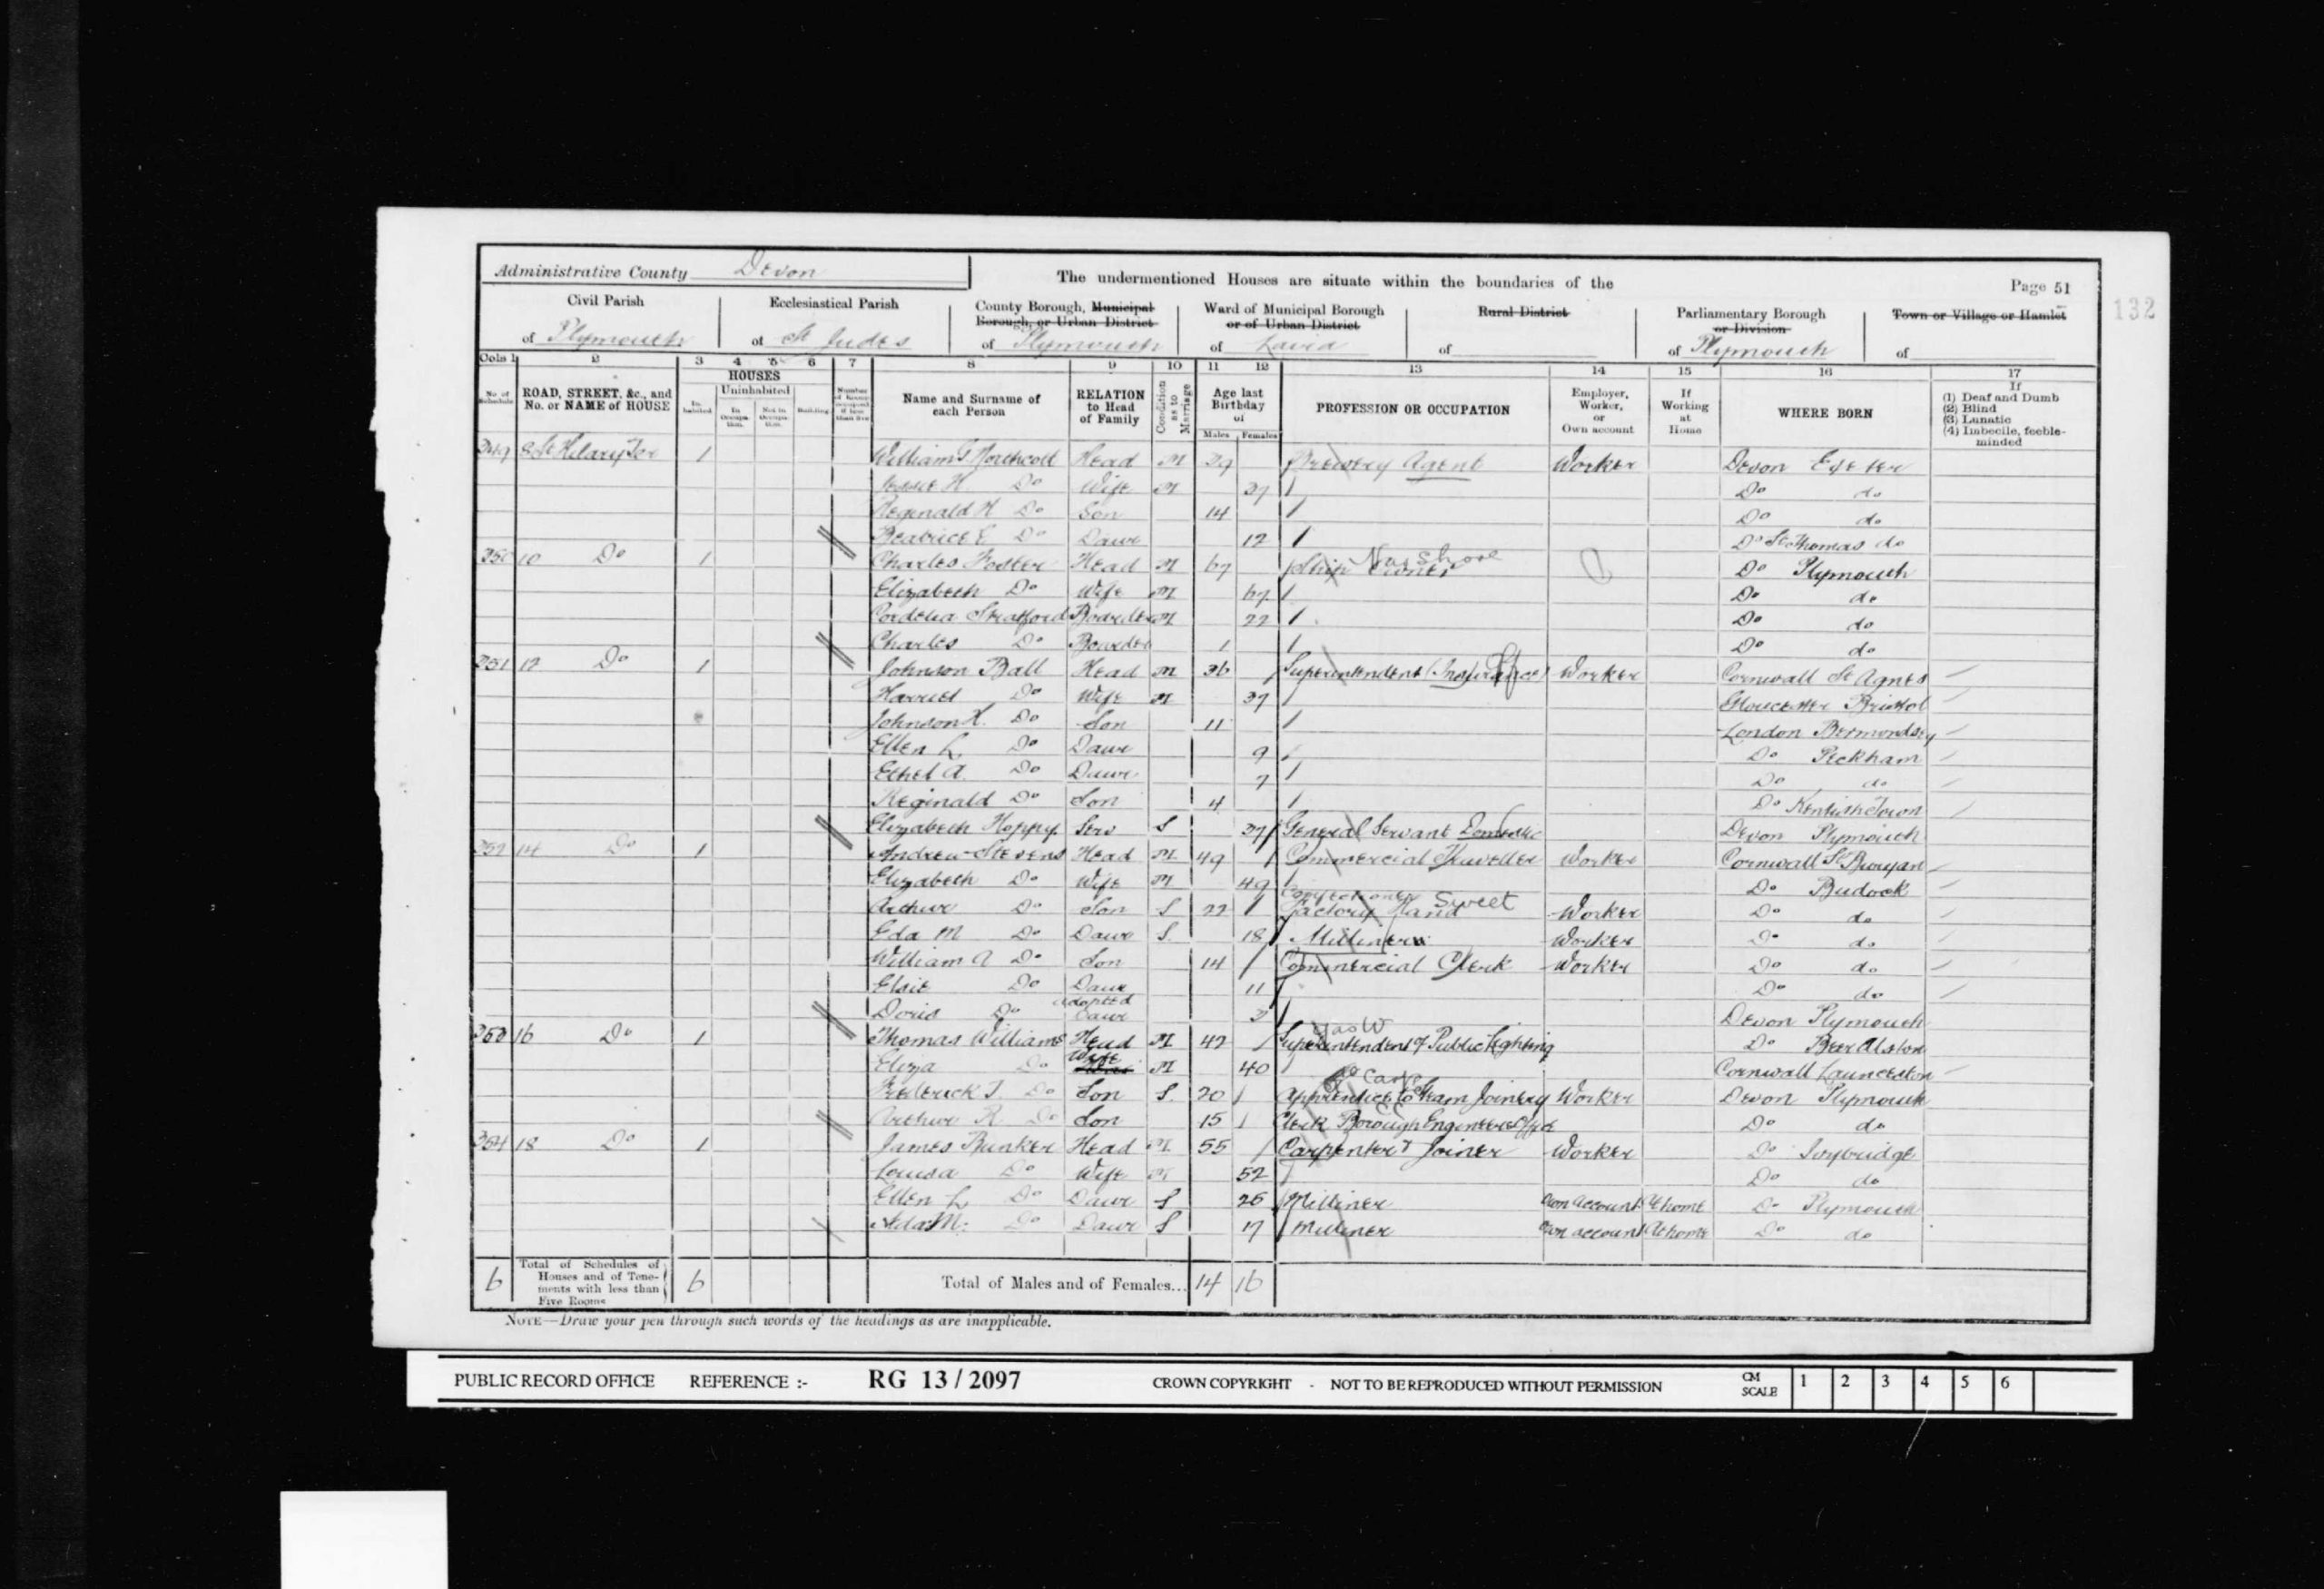 Administrative County Devon
The undermentioned Houses are situate within the boundaries of the
Page 51
132
Civil Parish
of Plymouth
Ecclesiastical Parish
of St Judes
County Borough, Municipal
Borough, or Urban District
of Plymouth
Ward of Municipal Borough
or of Urban District
of Laira
Rural District
of
Parliamentary Borough
or Division
of Plymouth
Town or Village or Hamlet
of
Cols 1 2 3 4 5 6 7 8 9 10 11 12 13 14 15 16 17
No of Schedule
ROAD, STREET, &c., and No. or NAME of HOUSE
HOUSES
In-habited
Uninhabited
In Occupa-tion.
Not in Occupa-tion.
Building
Number of Rooms occupied if less than five
Name and Surname of each Person
RELATION to Head of Family
Condition as to Marriage
Age last Birthday of
Males Females
PROFESSION OR OCCUPATION
Employer, Worker, or Own account
If Working at Home
WHERE BORN
If
(1) Deaf and Dumb
(2) Blind
(3) Lunatic
(4) Imbecile, feeble-minded
349 8 St Hilary Ter 1 William J Northcott Head M 39 Brewery Agent Worker Devon Exeter
Jessie H. Do Wife M 37 Do do
Reginald H Do Son 14 Do do
Beatrice E Do Daur 12 Do St Thomas do
350 10 Do 1 Charles Foster Head M 67 Ship Owner Do Plymouth
Elizabeth Do Wife M 67 Do do
Cordelia Stratford Boarder M 22 Do do
Charles Do Boarder 1 Do do
351 12 Do 1 Johnson Ball Head M 36 Superintendent (Insurance) Worker Cornwall St Agnes
Harriet Do Wife M 37 Gloucester Bristol
Johnson H. Do Son 11 London Bermondsey
Ellen L Do Daur 9 Do Peckham
Ethel A. Do Daur 7 Do do
Reginald Do Son 4 Do Kentish Town
Elizabeth Hoppy Serv S 37 General Servant Domestic Devon Plymouth
352 14 Do 1 Andrew Stevens Head M 49 Commercial Traveller Worker Cornwall St Buryan
Elizabeth Do Wife M 49 Do Budock
Confectionery Sweet
Arthur Do Son S 22 Factory Hand Worker Do do
Eda M Do Daur S. 18 Milliner Worker Do do
William A Do Son 14 Commercial Clerk Worker Do do
Elsie Do Daur 11 Do do
Doris Do adopted Daur 3 Devon Plymouth
Gas W
353 16 Do 1 Thomas Williams Head M 42 Superintendent of Public Lighting Do Beer Alston
Eliza Do Wife M 40 Cornwall Launceston
Frederick J. Do Son S. 20 Apprentice to Steam Joinery Worker Devon Plymouth
Arthur R Do Son 15 Clerk Borough Engineers Office Do do
354 18 Do 1 James Bunker Head M. 55 Carpenter & Joiner Worker Do Ivybridge
Louisa Do Wife M 52 Do do
Ellen L Do Daur S 26 Milliner own account At home Do Plymouth
Ada M. Do Daur S 17 Milliner own account At home Do do
6 Total of Schedules of Houses and of Tene-ments with less than Five Rooms 6 Total of Males and of Females... 14 16
NOTE—Draw your pen through such words of the headings as are inapplicable.
PUBLIC RECORD OFFICE REFERENCE :- RG 13 / 2097 CROWN COPYRIGHT - NOT TO BE REPRODUCED WITHOUT PERMISSION CM SCALE 1 2 3 4 5 6